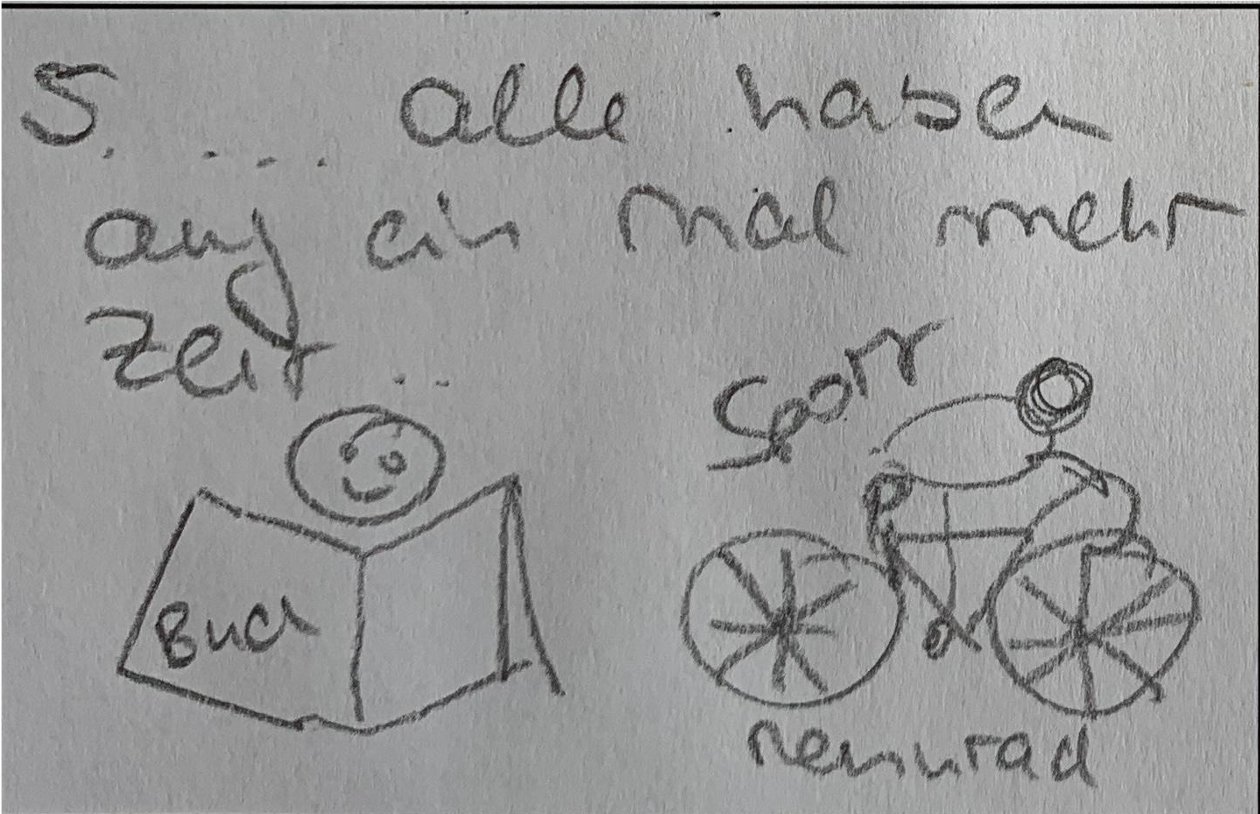 5. .... alle haben
auf ein mal mehr
Zeit ...
Sport
Buch
Rennrad